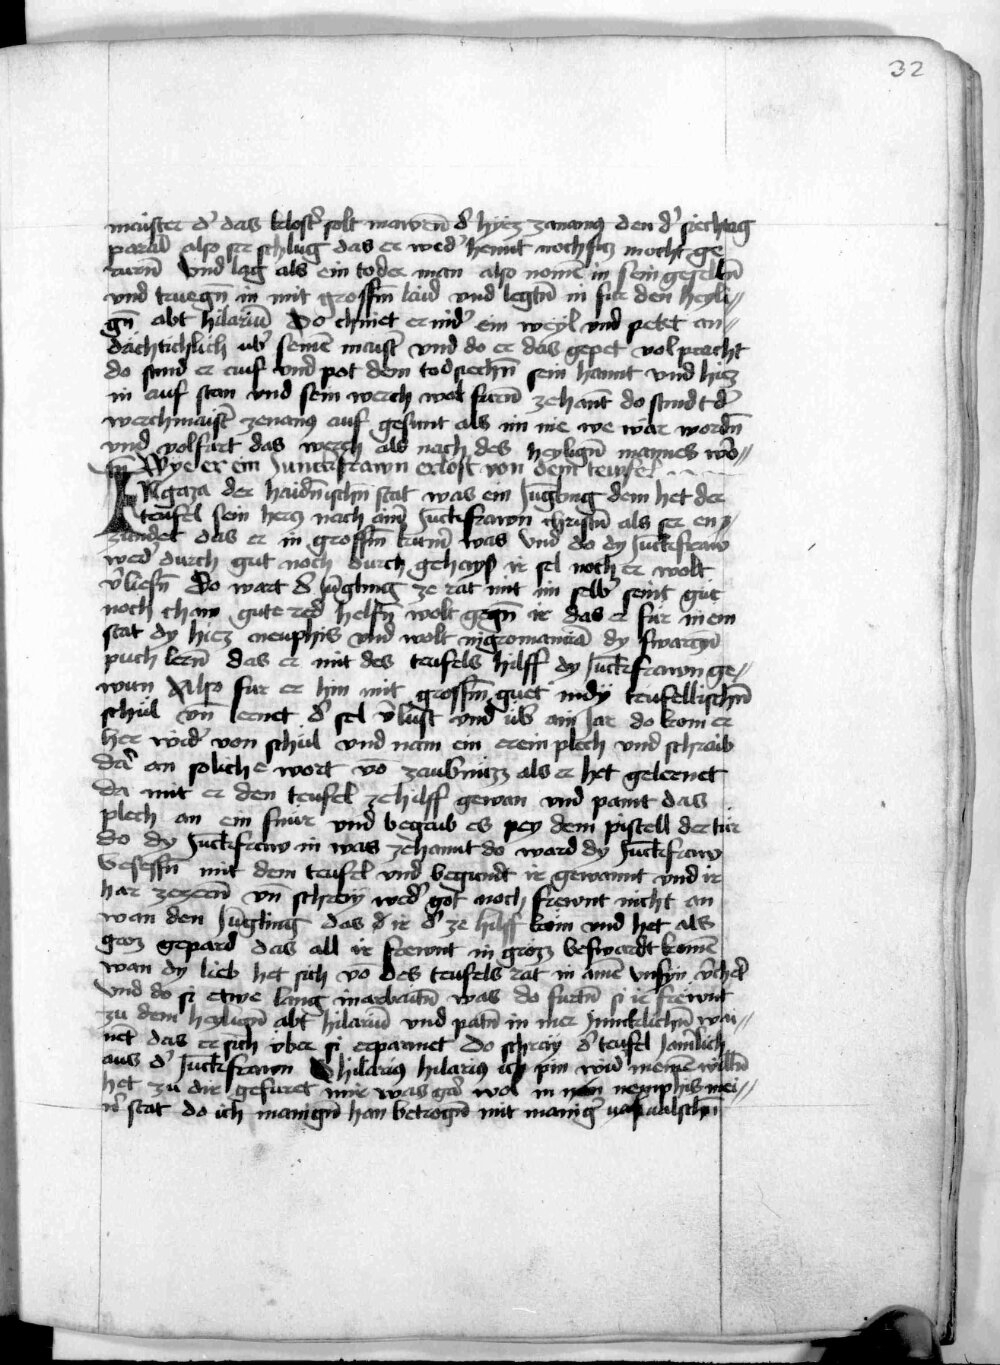 32
maister d' das klost' solt mawen d' hyez zananus den d' siechtag
paral' also ser schlug das er wed' hennt noch fuez mocht ge
rurn Vnd lag als ein toder man also nomē in sein gesellñ
vnd truegñ in mit grossm̄ laid vnd legtñ in fur den heyli〃
gñ abt hilariū Do chniet er nid' ein weyl vnd petet an〃
dachtichlich vb' seinē maist' vnd do er das gepet volpracht
do stund er auf vnd pot dem todsiechñ sein hannt vnd hiez
in auf stan vnd sein werch wol furn zehant do stundt d'
werchmaist' zenanus auf gesunt als im nie we wār wordñ
vnd volfurt das werch als nach des heyligñ mannes wō〃
tñ Wye er ein Junckfrawn erlost von dem teufel
IN gaza der haidnischñ stat was ein Jūgling dem het der
teufel sein hercz nach ainer Juckfrawn christñ als ser en〃
zundet das er in grossm̄ kum' was Vnd do dy Juckfraw
wed' durch gut noch durch gehayss ir sel noch er wolt
v'liesñ Do wart d' Jūgling ze rat mit im selb' seint gut
noch chain gute red helfñ wolt gegñ ir das er fur in ein
stat dy hiez menphis vnd wolt nigromanciā dy swarczñ
puch lernñ das er mit des teufels hilff dy Juckfrawn ge〃
wun Also fur er hin mit grossm̄ guet in dy teufellischñ
schul vñ lernet d' sel v'lust vnd vb' ain Jar do kom er
her wid' von schul vnd nam ein erein plech vnd schraib
dar an soliche wort vō zaubnizz als er het gelernet
da mit er den teufel ze hilff gewan vnd pant das
plech an ein snur vnd begrub es pey dem pistell der tur
do dy Juckfraw in was zehannt do ward dy Juckfraw
besessñ mit dem teufel vnd begundt ir gewannt vnd ir
har zezerrñ vñ schray wed' got noch frewnt nicht an
wan den Jugling das d' ir d' ze hilff kom vnd het als
groz gepard das all ir frewnt in grozz beswardt komē
wan dy lieb het sich vō des teufels rat in ainē vnsyn v'chert
vnd do si etwe lang in arbaitñ was do furtñ si ir frewnt
zu dem heyligñ abt hilariū vnd patñ in mer Jnnicklichñ wai〃
nēt das er sich vber si erparmet Do schray d' teufel Jam'lich
aus d' Juckfrawn O hilarius hilarius ich pin wid' meinē willñ
het zu dir gefuret mir was gar wol in nemphis mei〃
n' stat do ich manigñ han betrogñ mit manig' valschñ